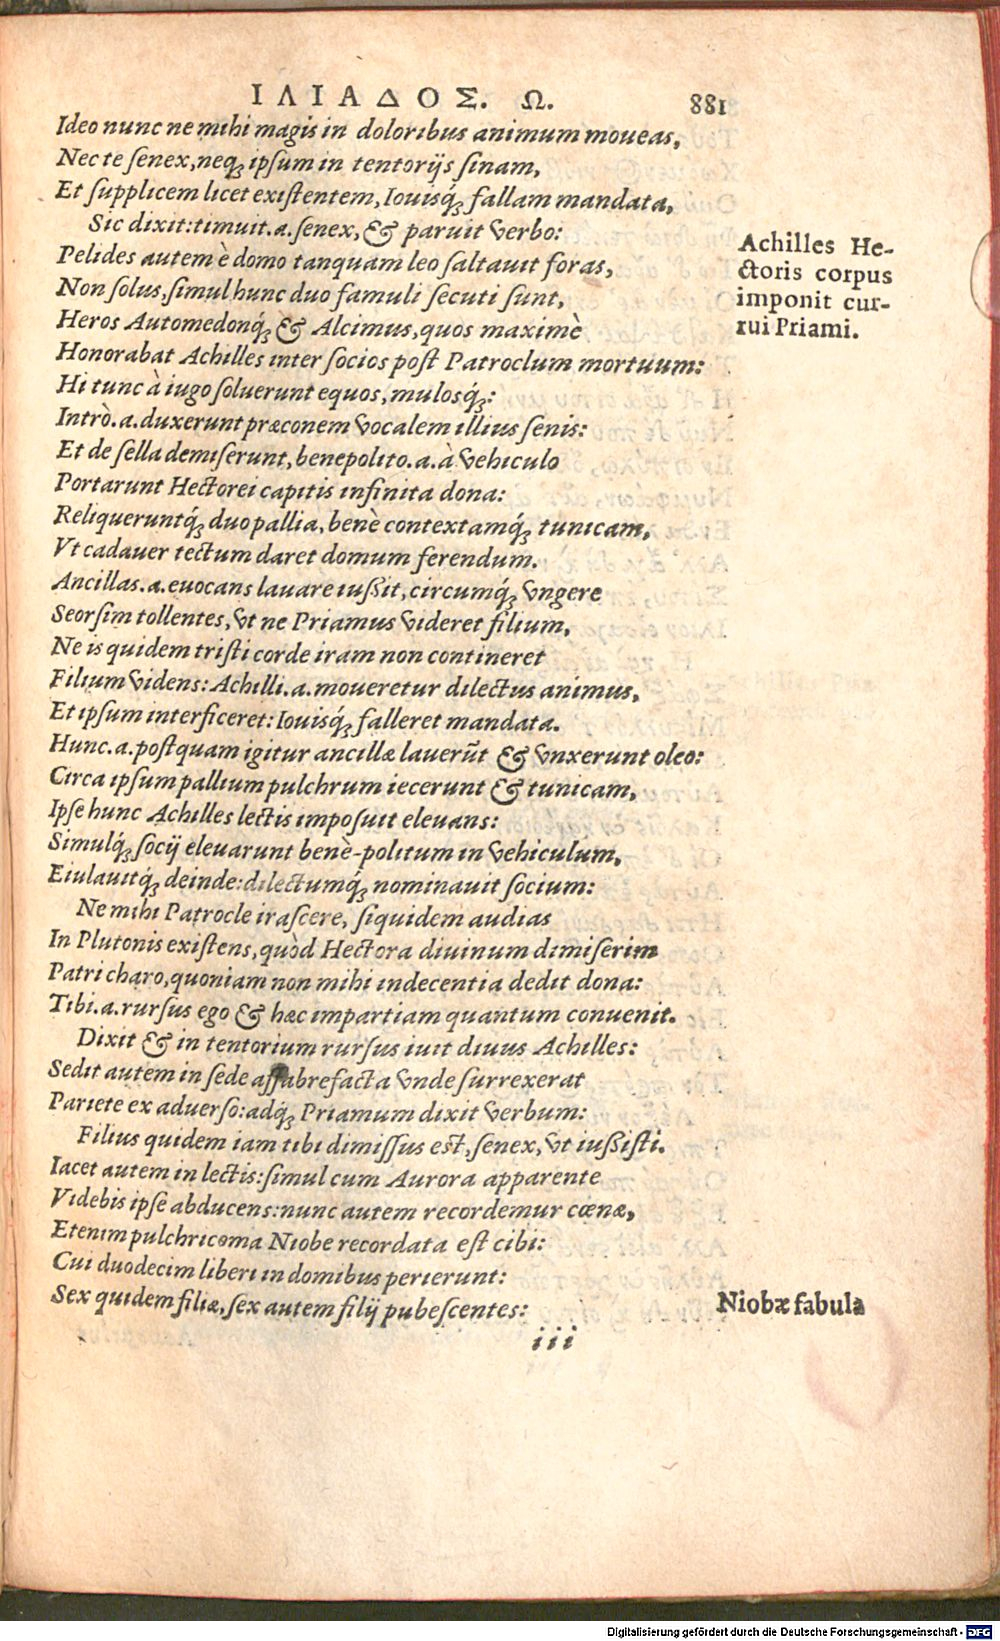 ΙΛΙΑΔΟΣ. Ω. 881
Ideo nunc ne mihi magis in doloribus animum moueas,
Nec te ſenex, neq; ipſum in tentorijs ſinam,
Et ſupplicem licet exiſtentem, Iouisq́; fallam mandata,
Sic dixit: timuit .a. ſenex, & paruit verbo:
Pelides autem è domo tanquam leo ſaltauit foras,
Non ſolus, ſimul hunc duo famuli ſecuti ſunt,
Heros Automedonq́; & Alcimus, quos maximè
Honorabat Achilles inter ſocios poſt Patroclum mortuum:
Hi tunc à iugo ſoluerunt equos, mulosq́;:
Intrò .a. duxerunt præconem vocalem illius ſenis:
Et de ſella demiſerunt, benepolito .a. à vehiculo
Portarunt Hectorei capitis infinita dona:
Reliqueruntq́; duo pallia, benè contextamq́; tunicam,
Vt cadauer tectum daret domum ferendum.
Ancillas .a. euocans lauare iußit, circumq́; vngere
Seorſim tollentes, vt ne Priamus videret filium,
Ne is quidem triſti corde iram non contineret
Filium videns: Achilli .a. moueretur dilectus animus,
Et ipſum interficeret: Iouisq́; falleret mandata.
Hunc .a. poſtquam igitur ancillæ lauerūt & vnxerunt oleo:
Circa ipſum pallium pulchrum iecerunt & tunicam,
Ipſe hunc Achilles lectis impoſuit eleuans:
Simulq́; ſocij eleuarunt benè-politum in vehiculum,
Eiulauitq́; deinde: dilectumq́; nominauit ſocium:
Ne mihi Patrocle iraſcere, ſiquidem audias
In Plutonis exiſtens, quòd Hectora diuinum dimiſerim
Patri charo, quoniam non mihi indecentia dedit dona:
Tibi .a. rurſus ego & hæc impartiam quantum conuenit.
Dixit & in tentorium rurſus iuit diuus Achilles:
Sedit autem in ſede affabrefacta vnde ſurrexerat
Pariete ex aduerſo: adq́; Priamum dixit verbum:
Filius quidem iam tibi dimiſſus eſt, ſenex, vt iußiſti.
Iacet autem in lectis: ſimul cum Aurora apparente
Videbis ipſe abducens: nunc autem recordemur cœnæ,
Etenim pulchricoma Niobe recordata eſt cibi:
Cui duodecim liberi in domibus perierunt:
Sex quidem filiæ, ſex autem filij pubeſcentes:
iii
Achilles He-
ctoris corpus
imponit cur-
rui Priami.
Niobæ fabula
Digitalisierung gefördert durch die Deutsche Forschungsgemeinschaft - DFG